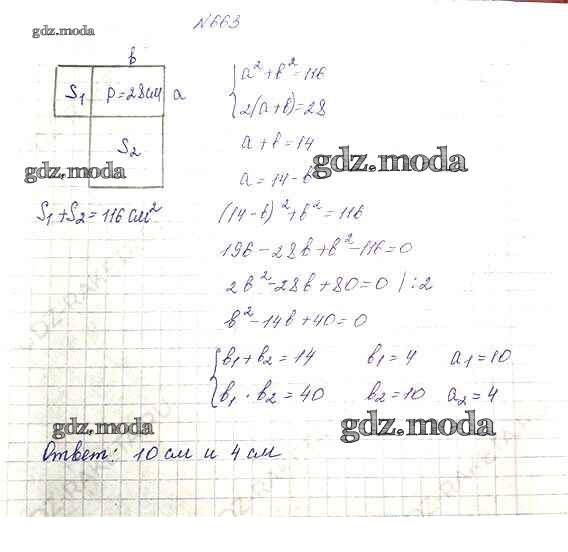 N663
gdz.moda
в
S₁ P=28см a
S₂
gdz.moda
S₁+S₂=116 см²
{a²+в²=116
2(a+в)=28
a+в=14
gdz.moda
a=14-в
(14-в)²+в²=116
196-28в+в²-116=0
2в²-28в+80=0 /:2
в²-14в+40=0
{в₁+в₂=14 в₁=4 a₁=10
в₁·в₂=40 в₂=10 a₂=4
gdz.moda
gdz.moda
Ответ: 10см и 4 см